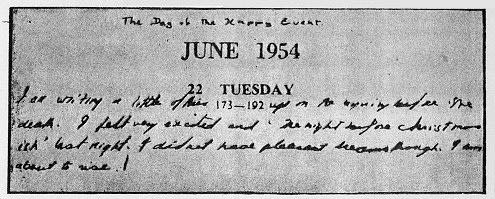 The Day of the Happy Event
JUNE 1954
22 TUESDAY
I am writing a little of this 173—192 up on the morning before the
death. I felt very excited and 'The night before Christmas
ish' last night. I did not have pleasant dreams though. I am
about to rise!